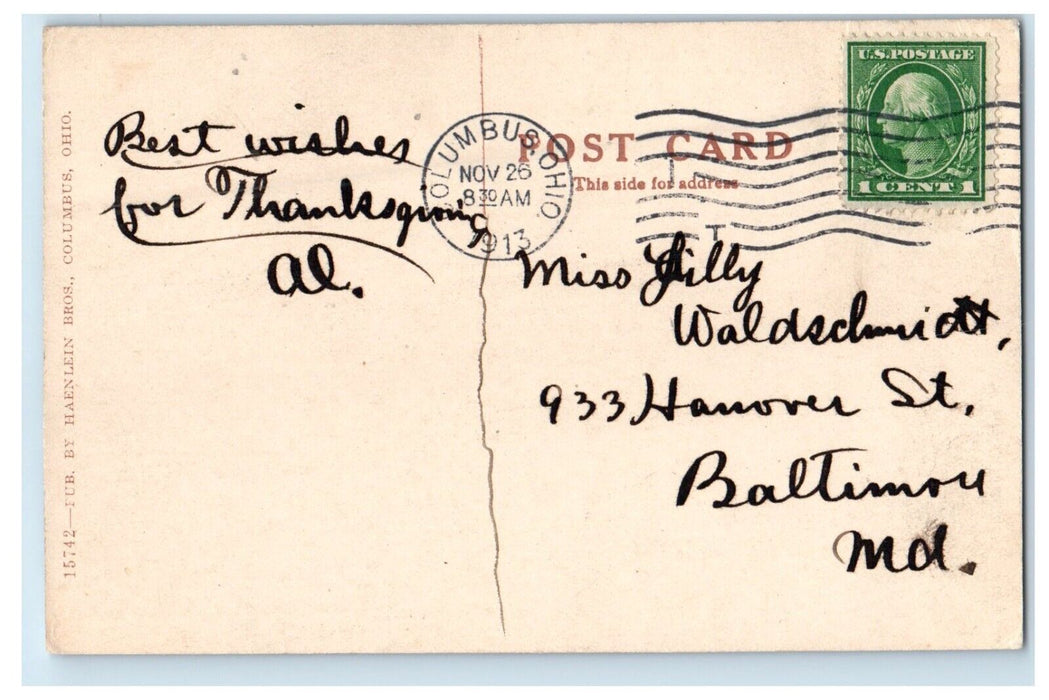 15742—PUB. BY HAENLEIN BROS., COLUMBUS, OHIO.
Best wishes
for Thanksgiving
Al.
COLUMBUS, OHIO
NOV 26
8 30 AM
1913
POST CARD
This side for address
U.S. POSTAGE
1 CENT 1
Miss
Waldschmidt,
933 Hanover St.
Baltimore
Md.